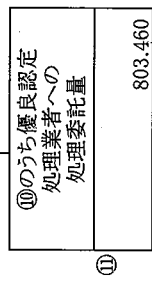 ⑪
⑩のうち優良認定
処理業者への
処理委託量
803.460